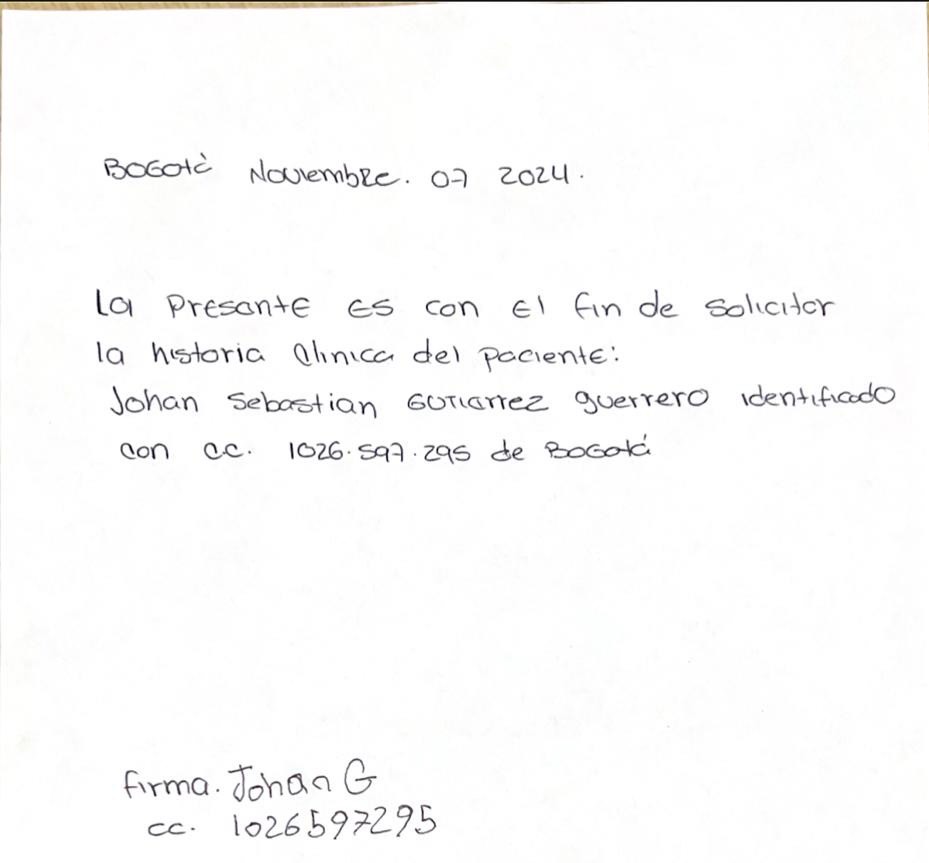 Bogotà Noviembre. 07 2024.
La presante es con el fin de solicitar
la historia Clinica del paciente:
Johan Sebastian Gutiarrez guerrero identificado
con cc. 1026.597.295 de Bogotá
firma. Johan G
cc. 1026597295